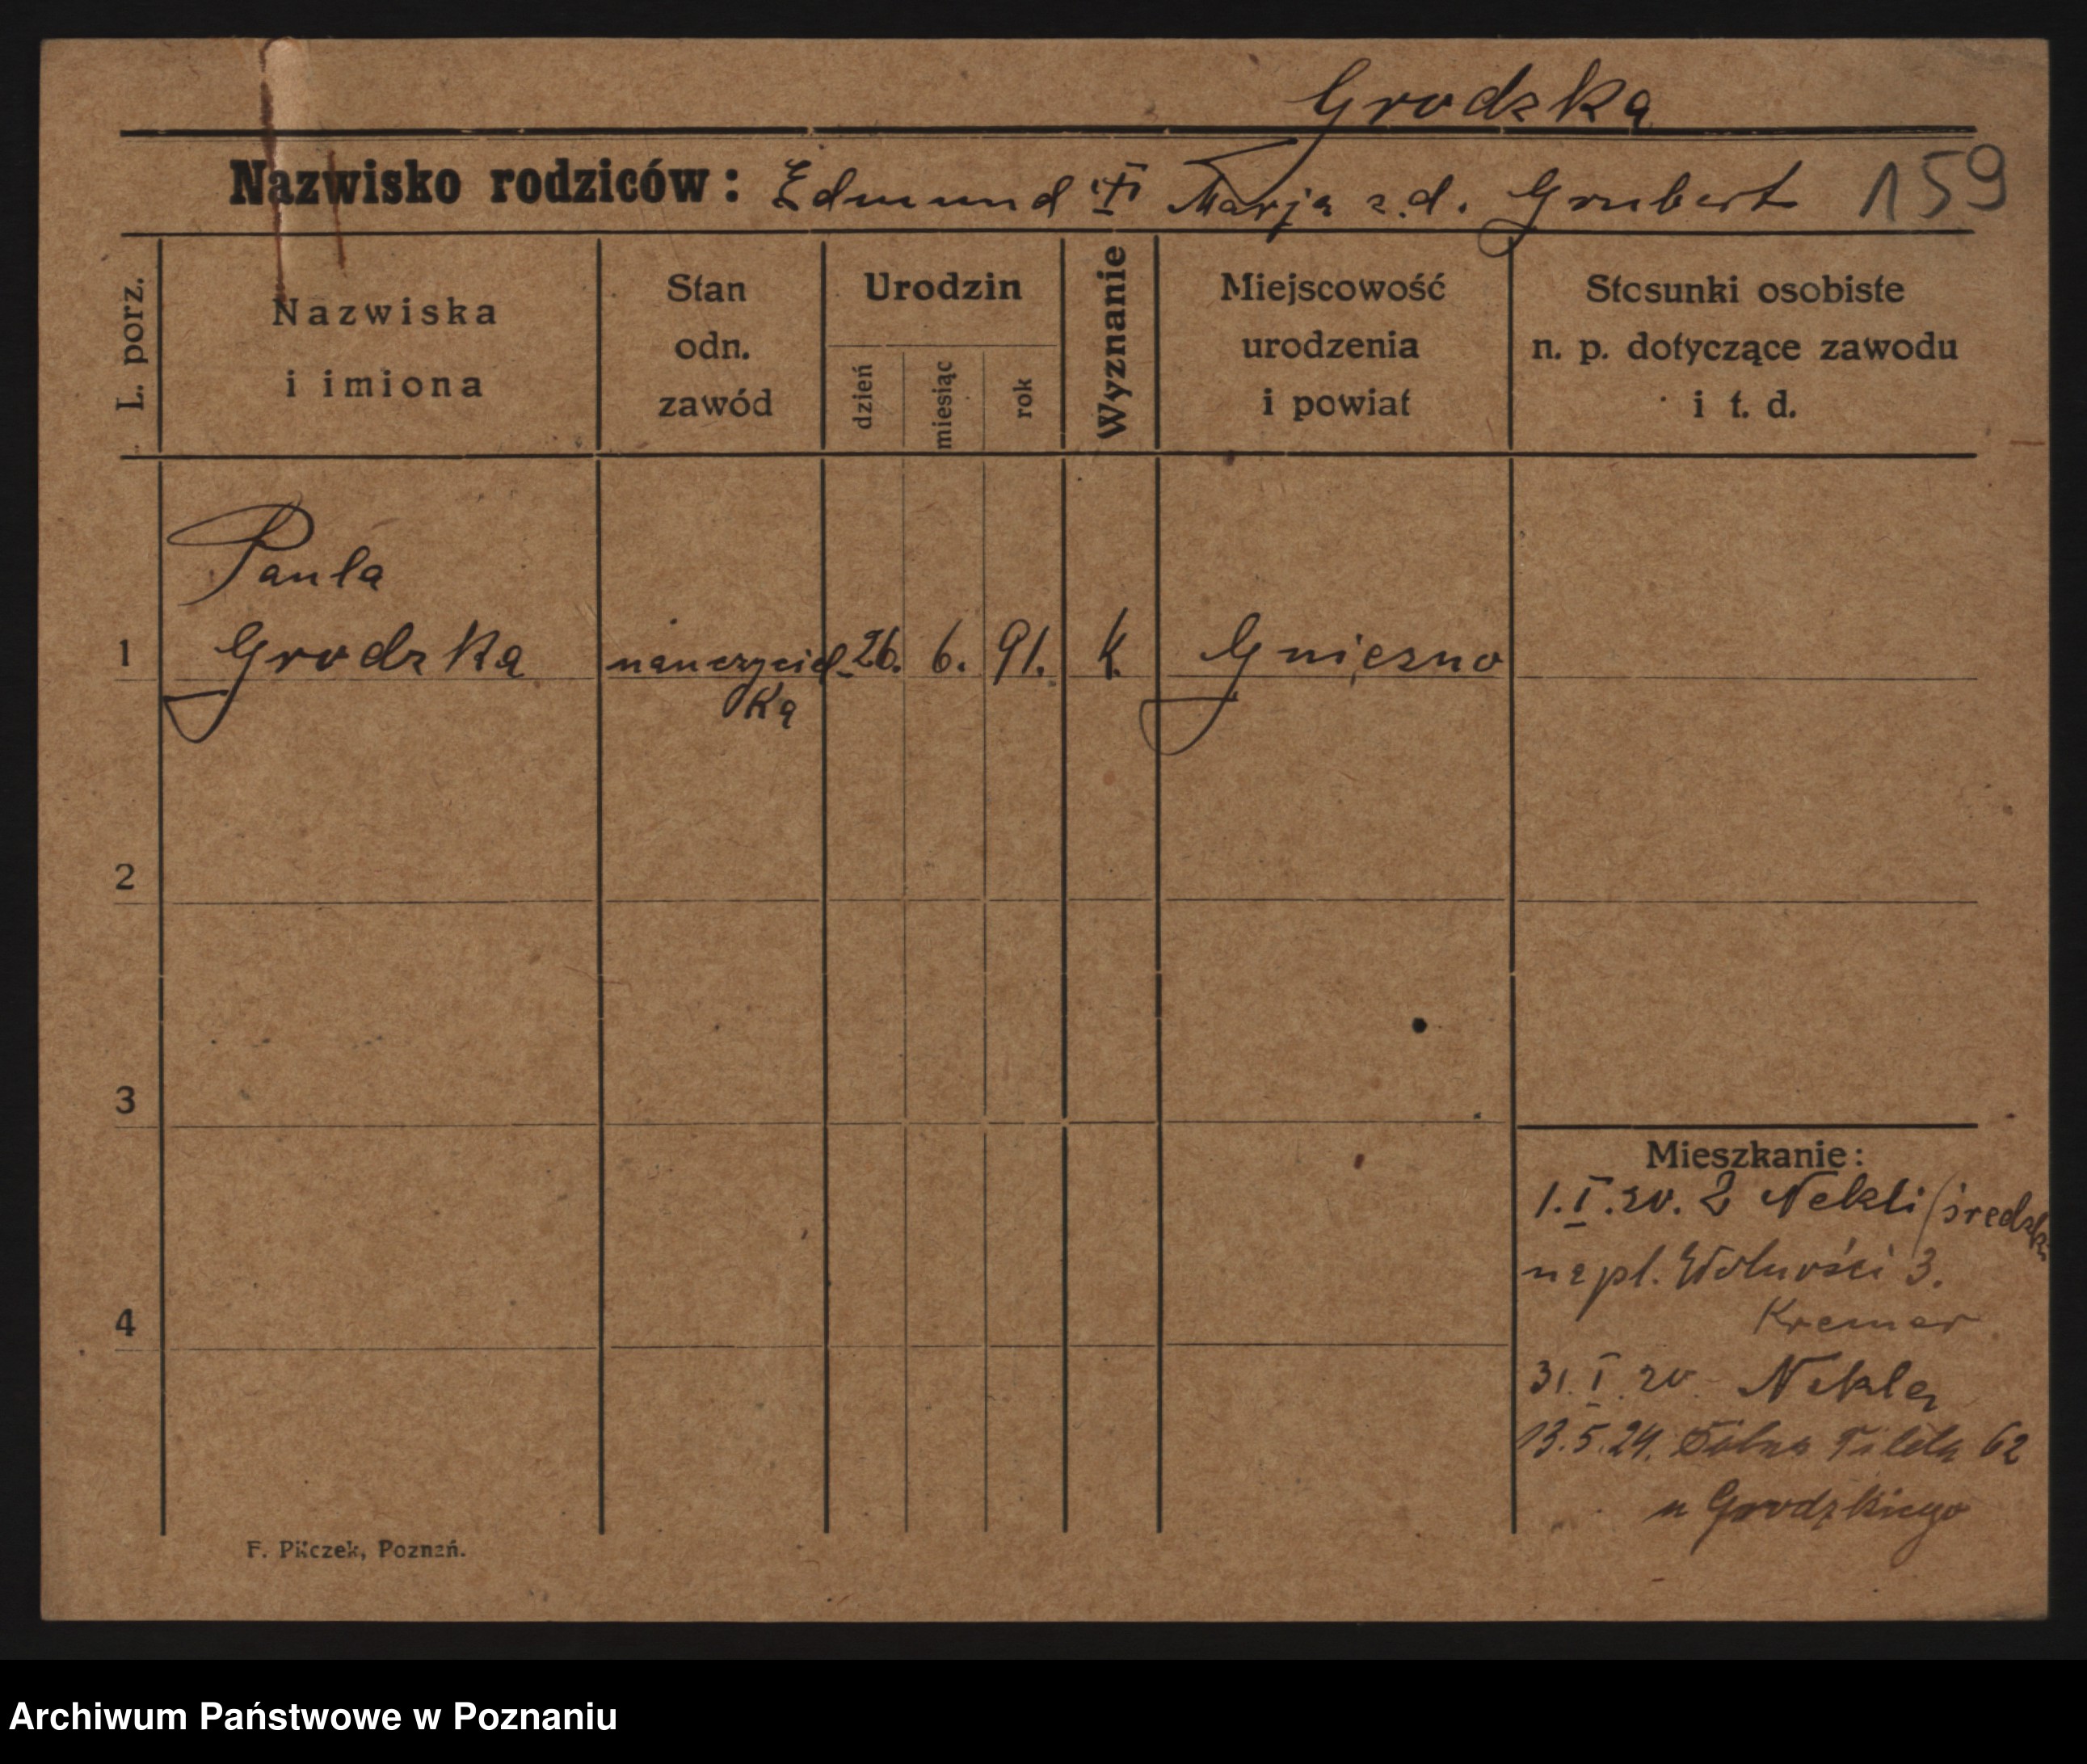 Grodzka
Nazwisko rodziców: Edmund Marja z.d. Grubert 159
L. porz.
Nazwiska
i imiona
Stan
odn.
zawód
Urodzin
dzień
miesiąc
rok
Wyznanie
Miejscowość
urodzenia
i powiat
Stosunki osobiste
n. p. dotyczące zawodu
i t. d.
Paula
1 Grodzka nauczyciel- 26. 6. 91. K. Gniezno
ka
2
3
4
Mieszkanie:
1. I. 20. Z Nekli
na pl. Wolności 3.
Kremer
31. I. 20 Nekla
13.5.24.
62
u Grodzkiego
F. Pilczek, Poznań.
Archiwum Państwowe w Poznaniu